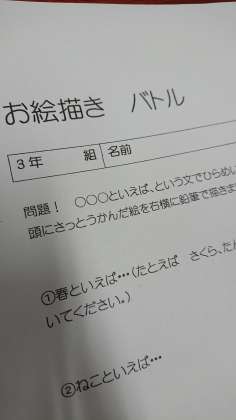 お絵描き　バトル
3年　　組　名前
問題！　○○○といえば、という文でひらめい
頭にさっとうかんだ絵を右横に鉛筆で描きま
①春といえば…（たとえば　さくら、たん
いてください。）
②ねこといえば…